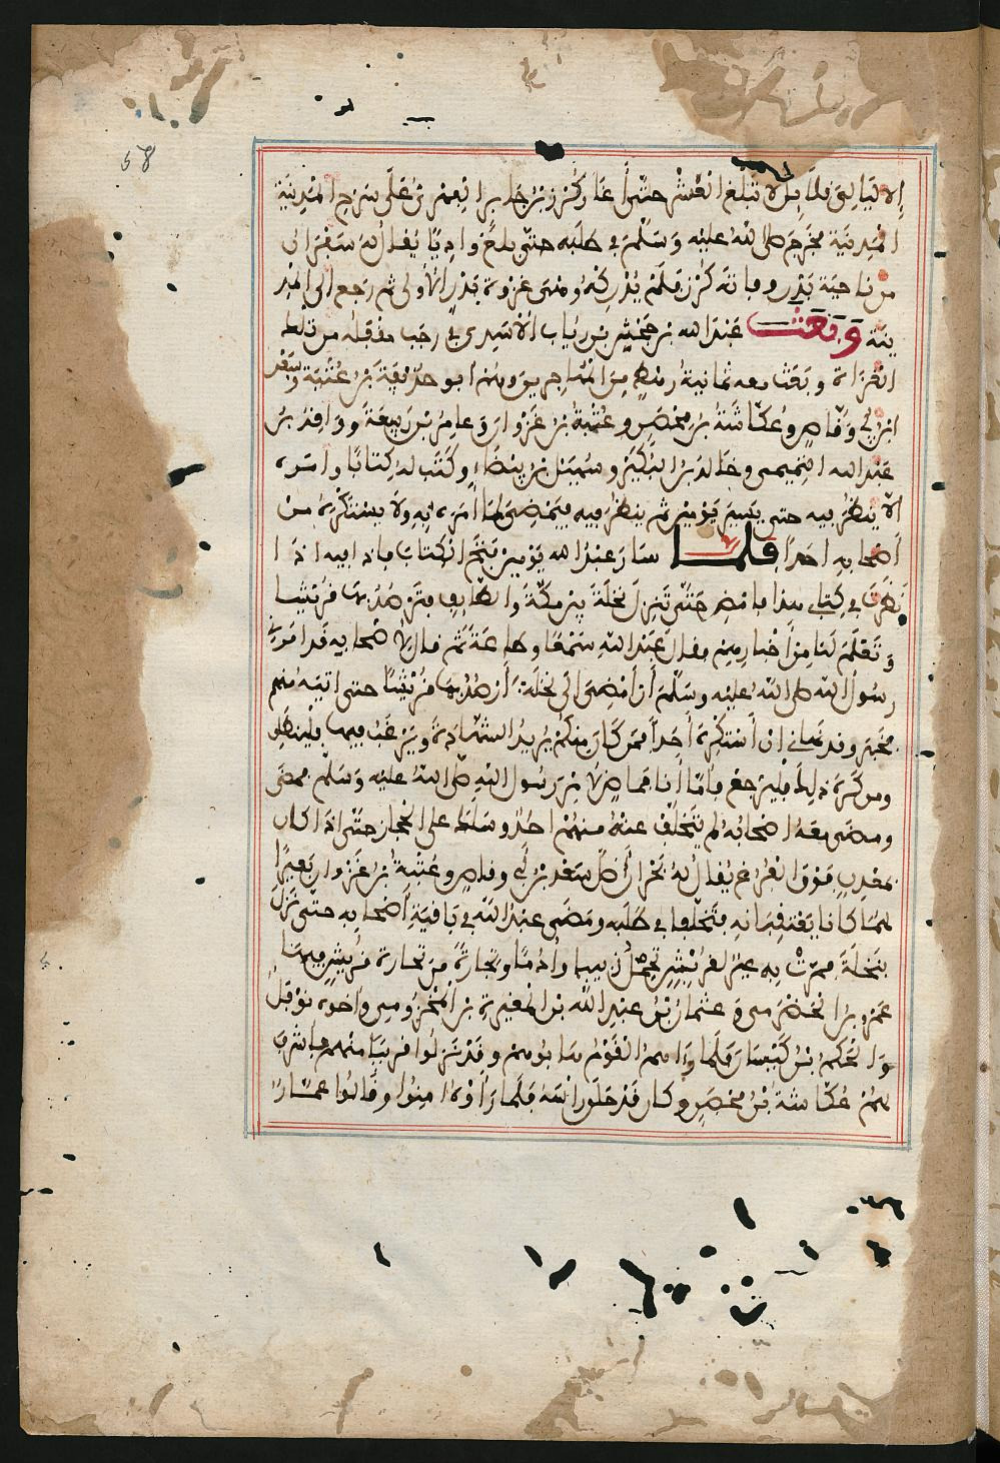 58
إلا ليالي قلائل لا تبلغ العشر حتى أغار كرز بن جابر الفهري على سرح المدينة
المدينة فخرج صلى الله عليه وسلم في طلبه حتى بلغ واديا يقال له سفوان
من ناحية بدر وفاته كرز فلم يدركه وهي غزوة بدر الأولى ثم رجع الى المد
ينة وبعث عبد الله بن جحش بن رياب الأسدي في رجب مقفله من تلك
الغزاة وبعث معه ثمانية رهط من المهاجرين وهم ابو حذيفة بن عتبة وسعد
ابن أبي وقاص وعكاشة بن محصن وعتبة بن غزوان وعامر بن ربيعة وواقد بن
عبد الله التميمي وخالد بن البكير وسهيل بن بيضاء وكتب له كتابا وأمره
ألا ينظر فيه حتى يسير يومين ثم ينظر فيه فيمضي لما أمره به ولا يستكره من
أصحابه احدا فلما سار عبد الله يومين فتح الكتاب فاذا فيه اذا
نظرت في كتابي هذا فامض حتى تنزل نخلة بين مكة والطائف فترصد بها قريشا
وتعلم لنا من أخبارهم فقال عبد الله سمعا وطاعة ثم قال لأصحابه قد امرني
رسول الله صلى الله عليه وسلم أن أمضي الى نخلة أرصد بها قريشا حتى اتيه منهم
بخبر وقد نهاني ان أستكره أحدا فمن كان منكم يريد الشهادة ويرغب فيها فلينطلق
ومن كره ذلك فليرجع فأما أنا فماض لأمر رسول الله صلى الله عليه وسلم فمضى
ومضى معه أصحابه لم يتخلف عنه منهم احد وسلك على الحجاز حتى اذا كان
بمعدن فوق الفرع يقال له بحران أضل سعد بن أبي وقاص وعتبة بن غزوان بعيرا
لهما كانا يعتقبانه فتخلفا في طلبه ومضى عبد الله في باقية أصحابه حتى نزل
بنخلة فمرت به عير لقريش تحمل زبيبا وأدما وتجارة من تجارة قريش فيها
عمرو بن الحضرمي وعثمان بن عبد الله بن المغيرة المخزومي وأخوه نوفل
والحكم بن كيسان فلما رءاهم القوم هابوهم وقد نزلوا قريبا منهم فأشرف
لهم عكاشة بن محصن وكان قد حلق رأسه فلما رأوه امنوا وقالوا عمار